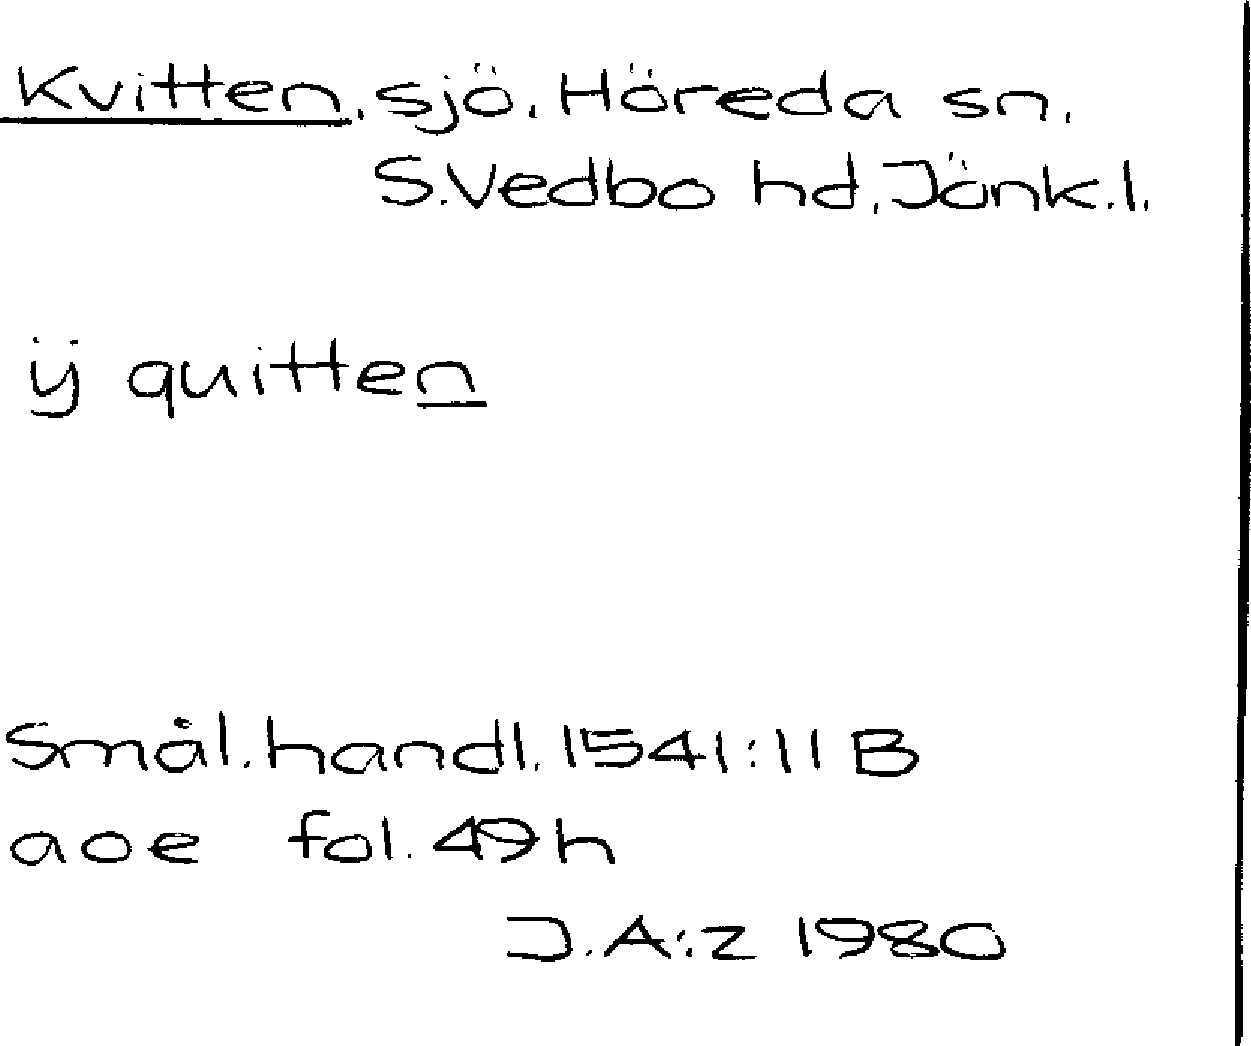 Kvitten, sjö, Höreda sn,
S.Vedbo hd, Jönk.l.
ÿ quitten
Smål.handl. 1541:11 B
aoe fol. 49h
J.A:z 1980